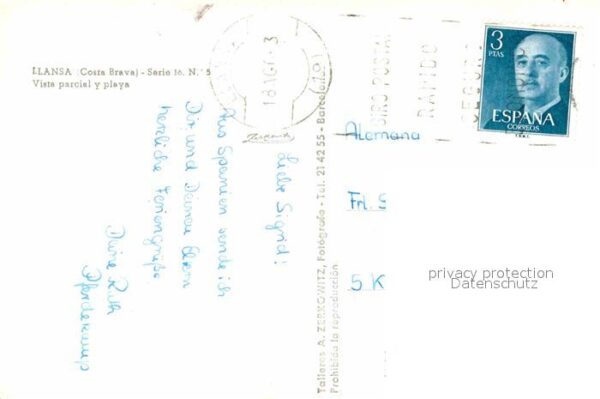 LLANSA (Costa Brava) - Serie 16. N.° 5
Vista parcial y playa
Liebe Sigrid!
Aus Spanien sende ich
Dir und Deinen Eltern
herzliche Feriengrüße.
Deine Ruth
Talleres A. ZERKOWITZ, Fotógrafo - Tel. 21 42 55 - Barcelona
Prohibida la reproducción
GIRO POSTAL
RAPIDO
SEGURO
3
PTAS
ESPAÑA
CORREOS
Alemana
Frl. S
5 K
privacy protection
Datenschutz